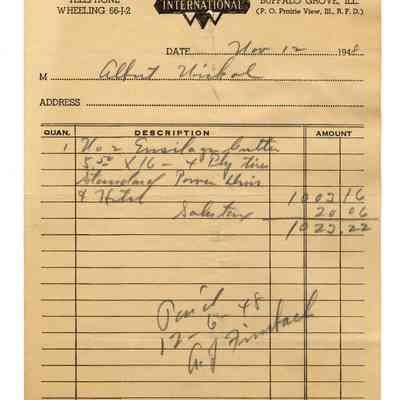 TELEPHONE
WHEELING 66-J-2
INTERNATIONAL
BUFFALO GROVE, ILL.
(P. O. Prairie View, Ill., R. F. D.)
DATE Nov 12 1948
M Albert
ADDRESS
QUAN. DESCRIPTION AMOUNT
1 No 2 Ensilage Cutter
5.50 X 16 - 4 Ply tires
Standard Power
& Hitch 1003 16
Sales tax 20 06
1023.22
Paid
12-6-48
A.J. Fimbach